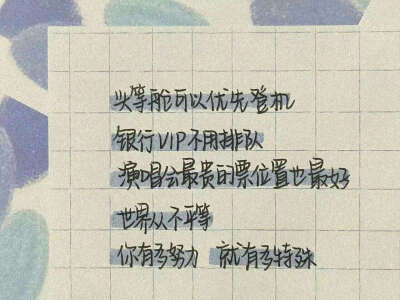 头等舱可以优先登机
银行VIP不用排队
演唱会最贵的票位置也最好
世界从不平等
你有多努力 就有多特殊